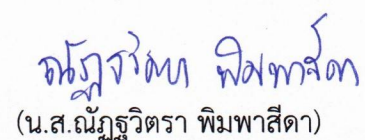 ณัฏฐวิตรา พิมพาสีดา
(น.ส.ณัฏฐวิตรา พิมพาสีดา)